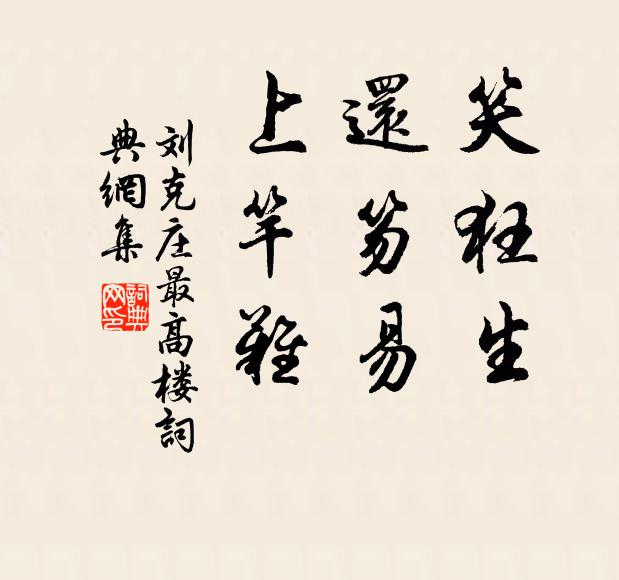 笑狂生
還笏易
上竿難
刘克庄最高楼詞
典網集
詞典网印